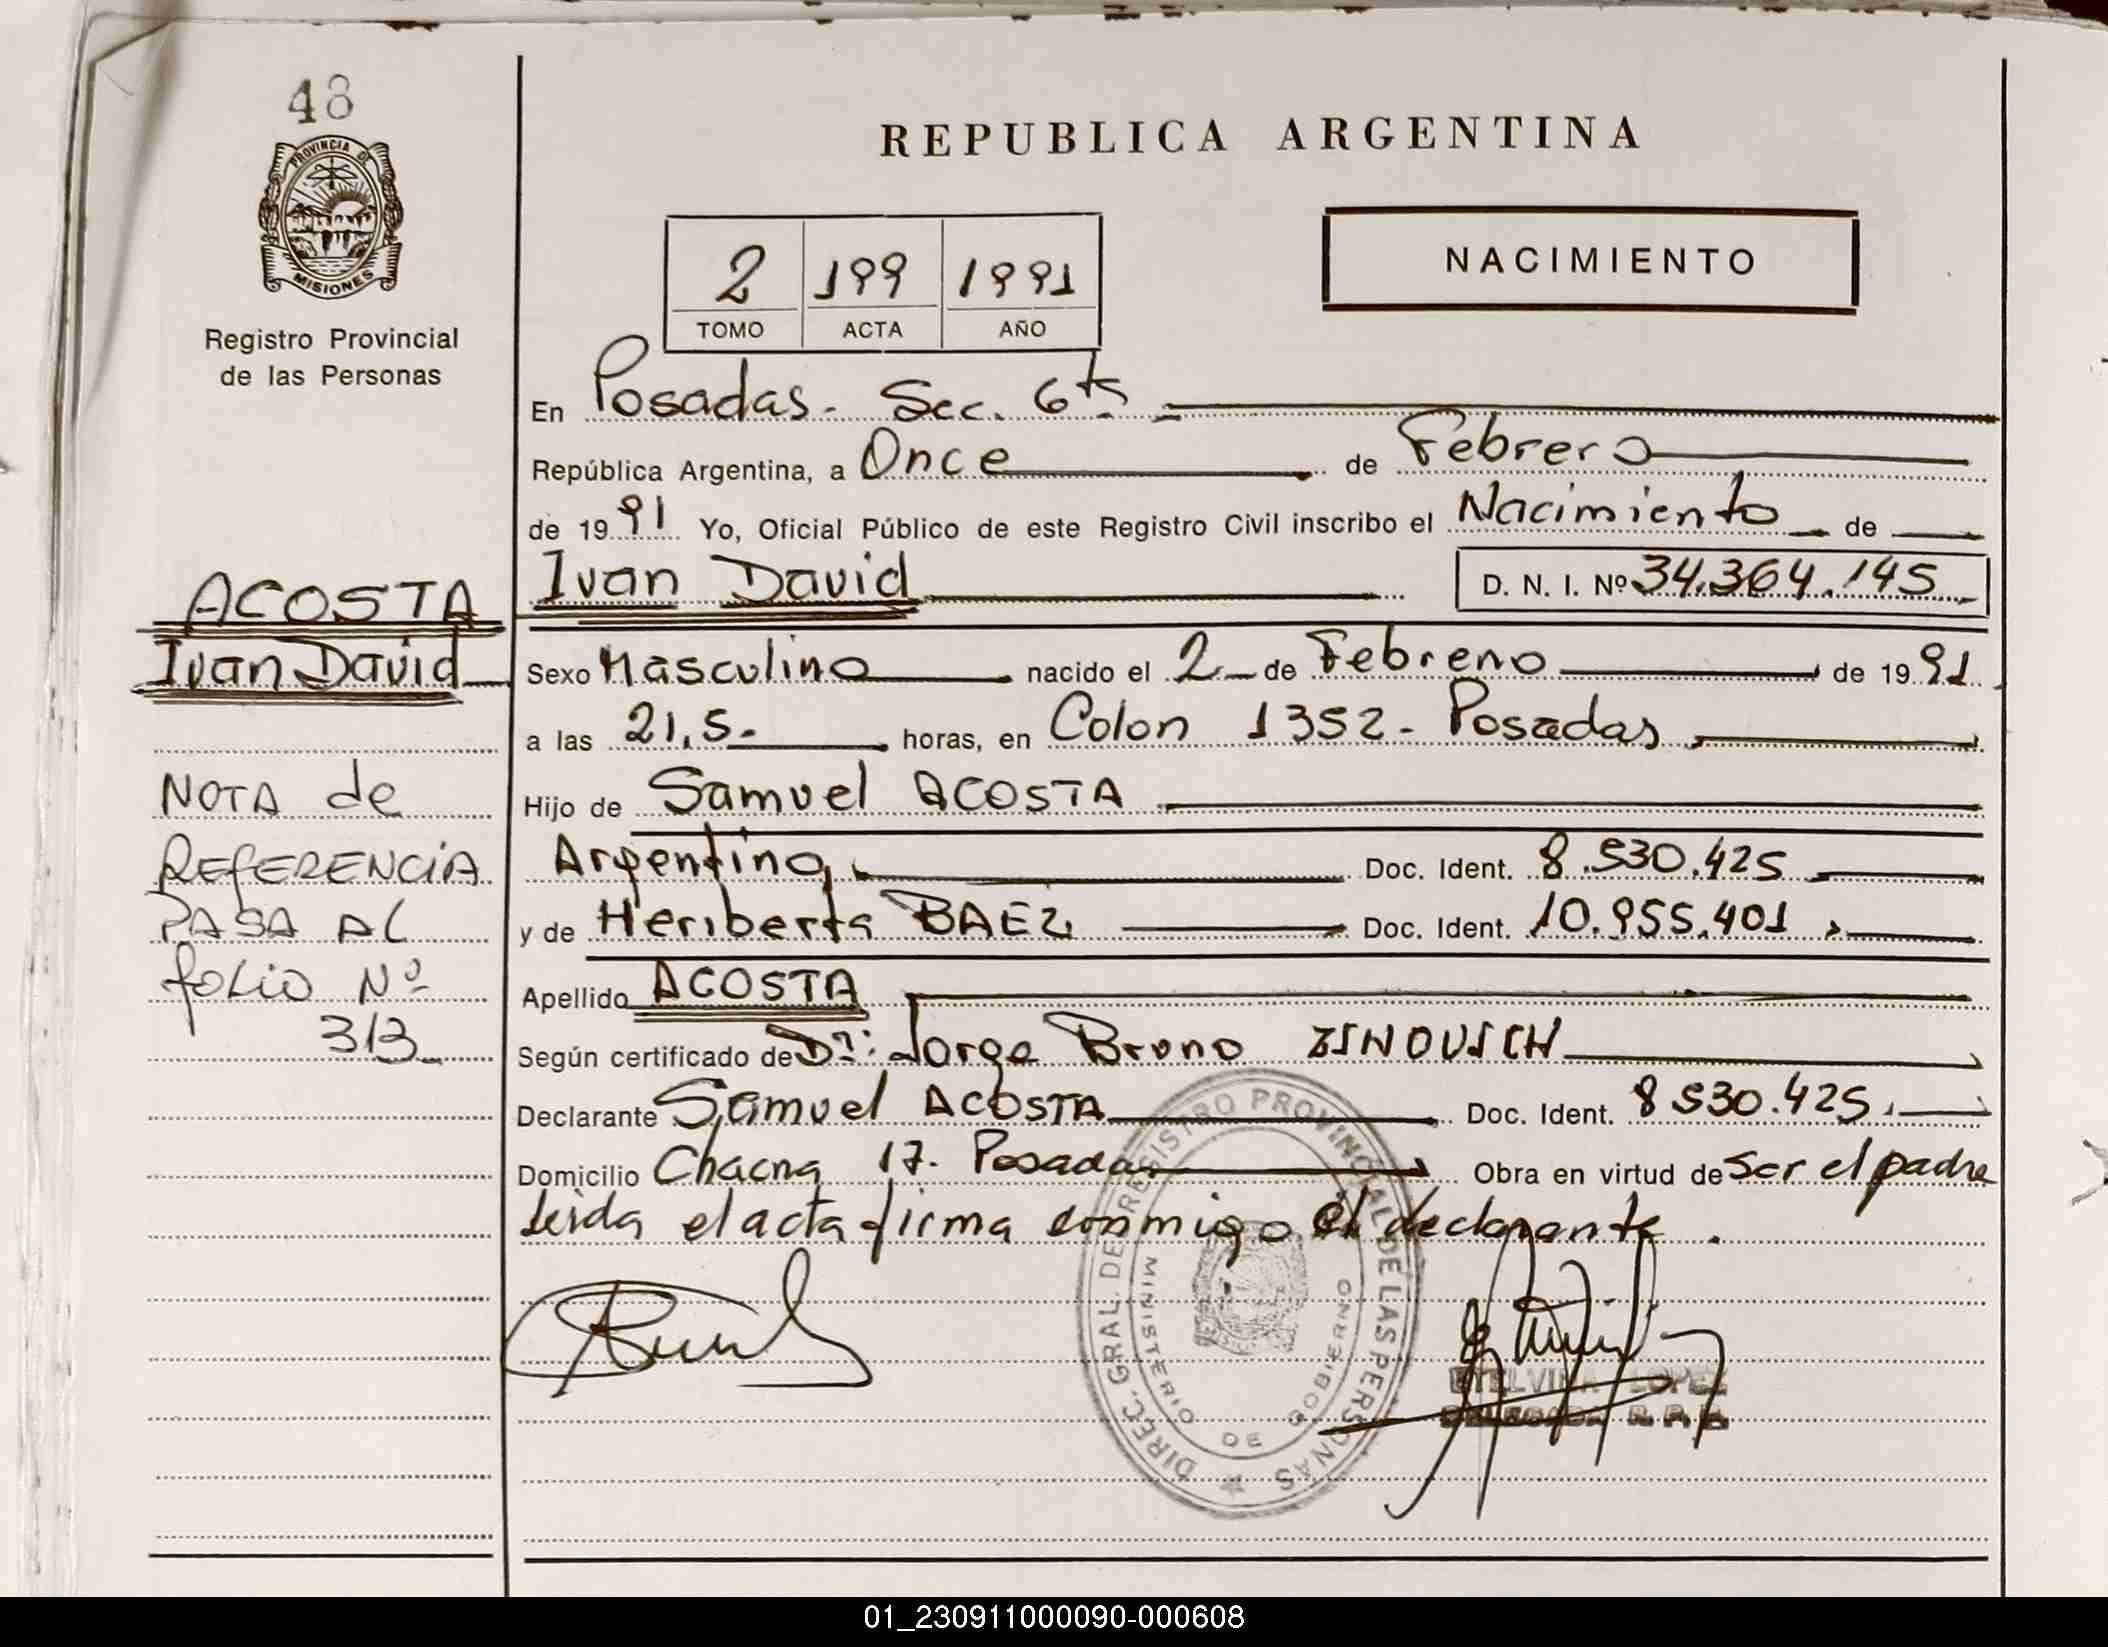 48
PROVINCIA DE
MISIONES
Registro Provincial
de las Personas
ACOSTA
Ivan David
NOTA de
REFERENCIA
PASA AL
folio Nº
313
REPUBLICA ARGENTINA
NACIMIENTO
2 199 1991
TOMO ACTA AÑO
En Posadas. Sec. 6ta
República Argentina, a Once de Febrero
de 1991 Yo, Oficial Público de este Registro Civil inscribo el Nacimiento de
Ivan David D. N. I. Nº 34.364.145
Sexo Masculino nacido el 2 de Febrero de 1991
a las 21,5. horas, en Colon 1352 - Posadas
Hijo de Samuel ACOSTA
Argentino, Doc. Ident. 8.530.425
y de Heriberta BAEZ Doc. Ident. 10.955.401
Apellido ACOSTA
Según certificado de Dr: Jorge Bruno ZINOVICH
Declarante Samuel ACOSTA Doc. Ident. 8530.425.
Domicilio Chacra 17. Posadas Obra en virtud de ser el padre
leida el acta firma conmigo el declarante.
DIREC. GRAL. DE REGISTRO PROVINCIAL DE LAS PERSONAS
MINISTERIO DE GOBIERNO
ETELVINA LOPEZ
DELEGADA R.P.P.
01_230911000090-000608